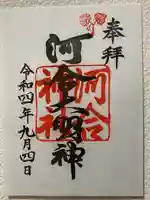 奉拝
河合大明神
河合
神社
令和四年九月四日